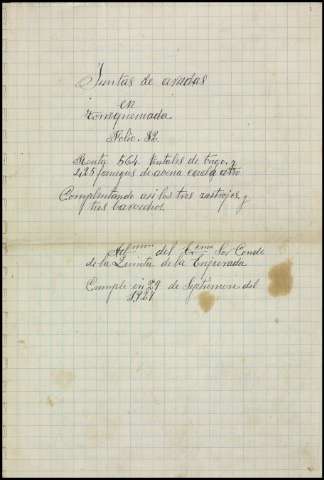 Juntas de cejadas
en
Torrequemada
Folio. 82
Renta 564 fentales de trigo, y
425 fanegas de avena cada año
Complentando asi los tres rastrojos y
tres barvechos
Adm.mon del Excmo Sor Conde
de la Quinta de la Enjarada
Cumple en 29 de Septiembre del
1921